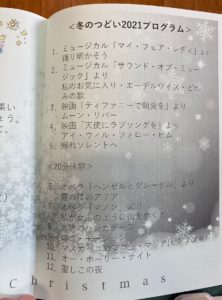 <冬のつどい2021プログラム>
1. ミュージカル「マイ・フェア・レディ」より
踊り明かそう
2. ミュージカル「サウンド・オブ・ミュー
ジック」より
私のお気に入り・エーデルワイス・どれ
みの歌
3. 映画「ティファニーで朝食を」より
ムーン・リバー
4. 映画「天使にラブソングを」より
アイ・ウィル・フォロー・ヒム
5. 帰れソレントへ
<20分休憩>
6. オペラ「ヘンゼルとグレーテル」より
露の精のアリア
7. オペラ「マノン」より
私が女王のように街を歩くと
8.
9.
10.
11. オー・ホーリー・ナイト
12. 聖しこの夜
Christmas